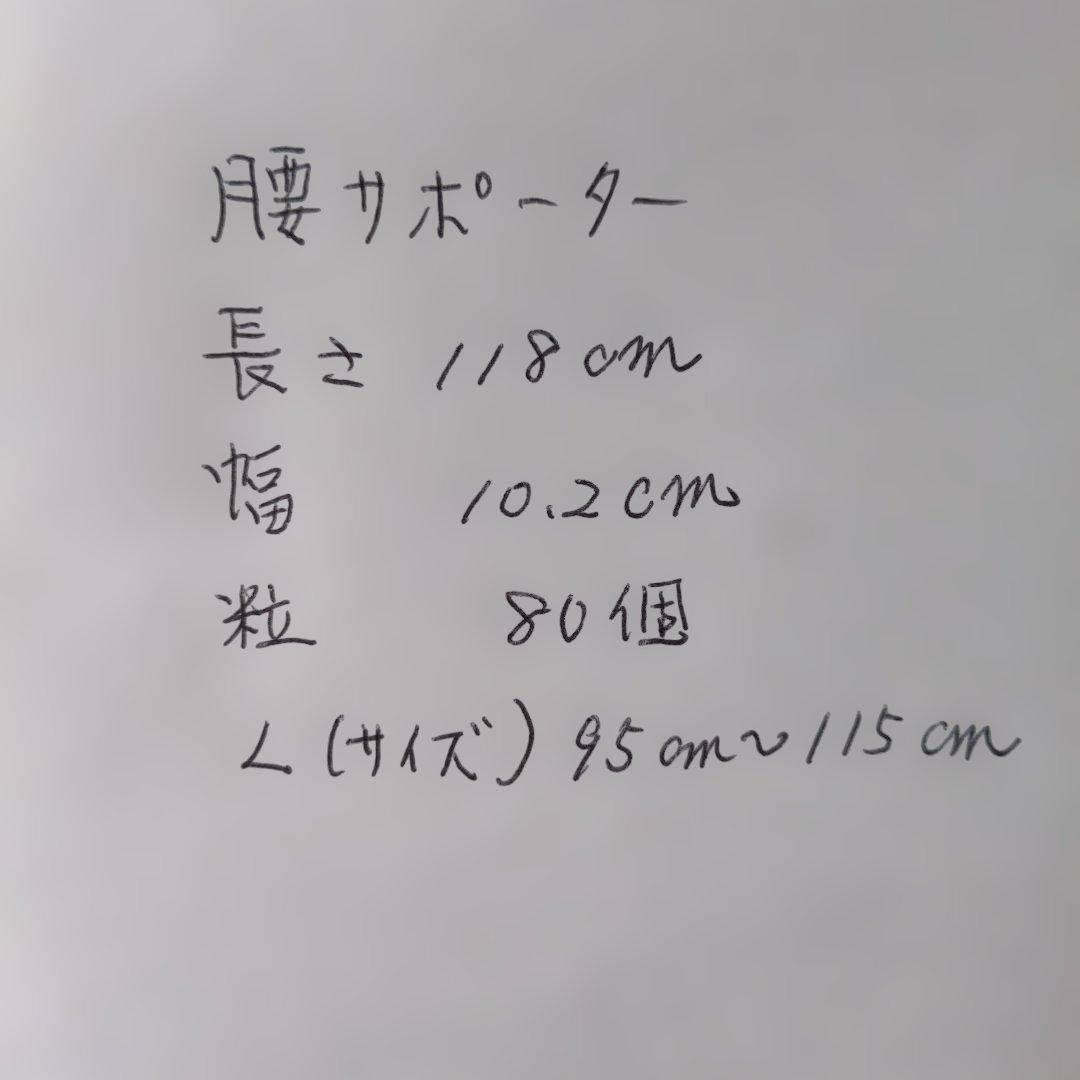 腰サポーター
長さ 118cm
幅 10.2cm
粒 80個
L(サイズ) 95cm~115cm